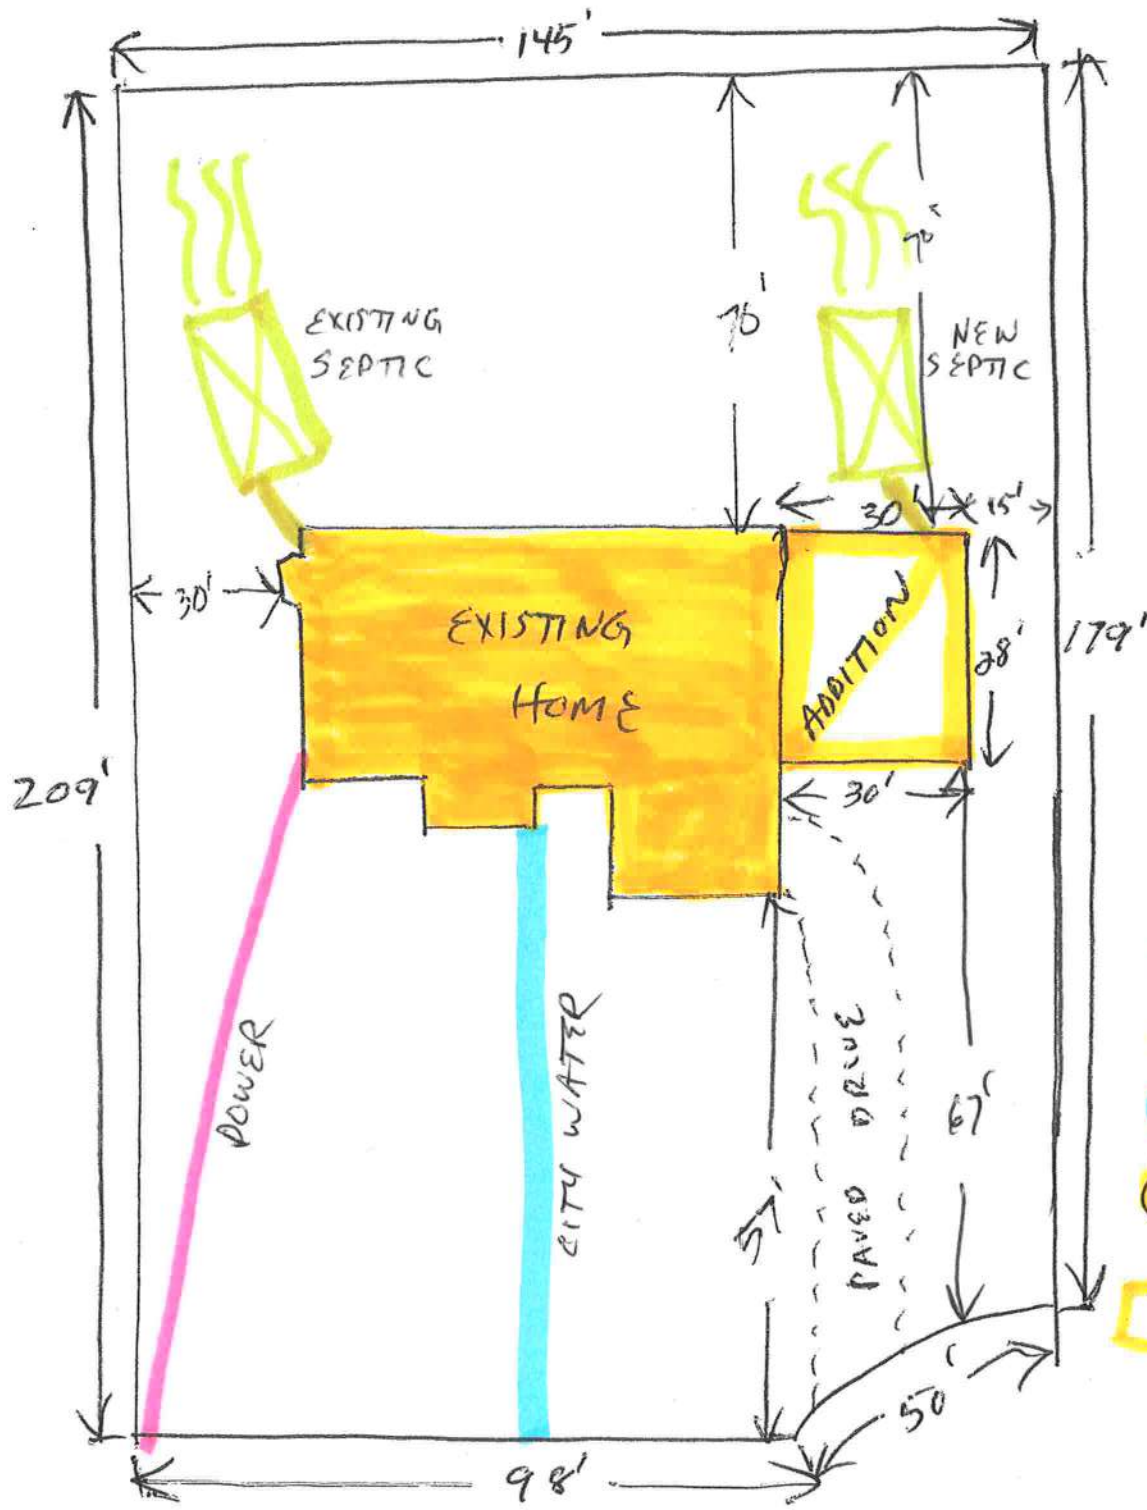 145'
EXISTING
SEPTIC
NEW
SEPTIC
30'
15'
30'
EXISTING
HOME
ADDITION
28'
179'
209'
30'
POWER
CITY WATER
PAVED DRIVE
67'
57'
50'
98'